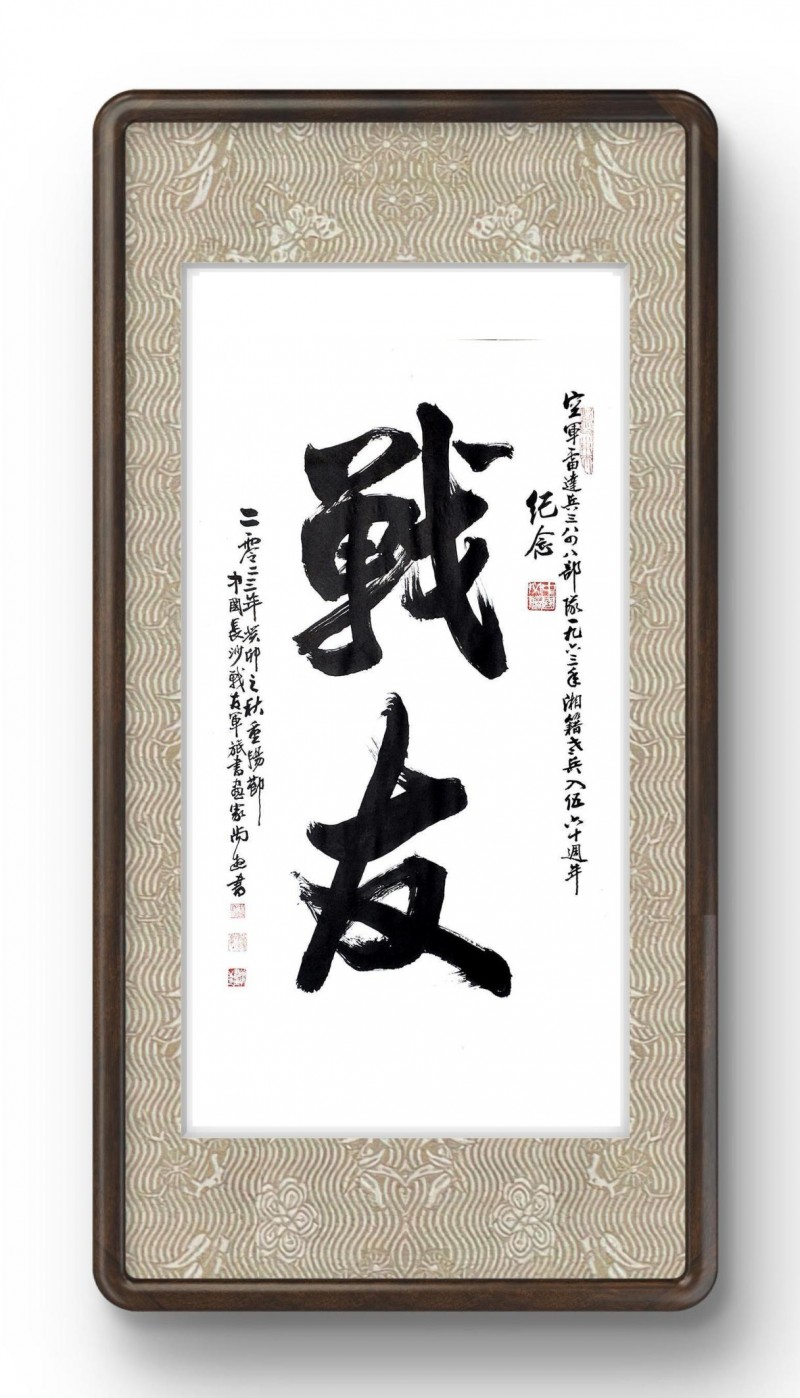 空軍雷達兵三八四八部隊一九六三年湘籍老兵入伍六十週年
纪念
戰友
二零二三年癸卯之秋重陽節
中國長沙戰友軍旅書畫家尚書